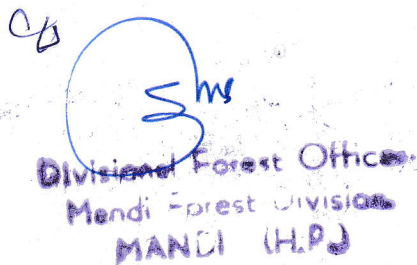 Divisional Forest Officer
Mandi Forest Division
MANDI (H.P.)